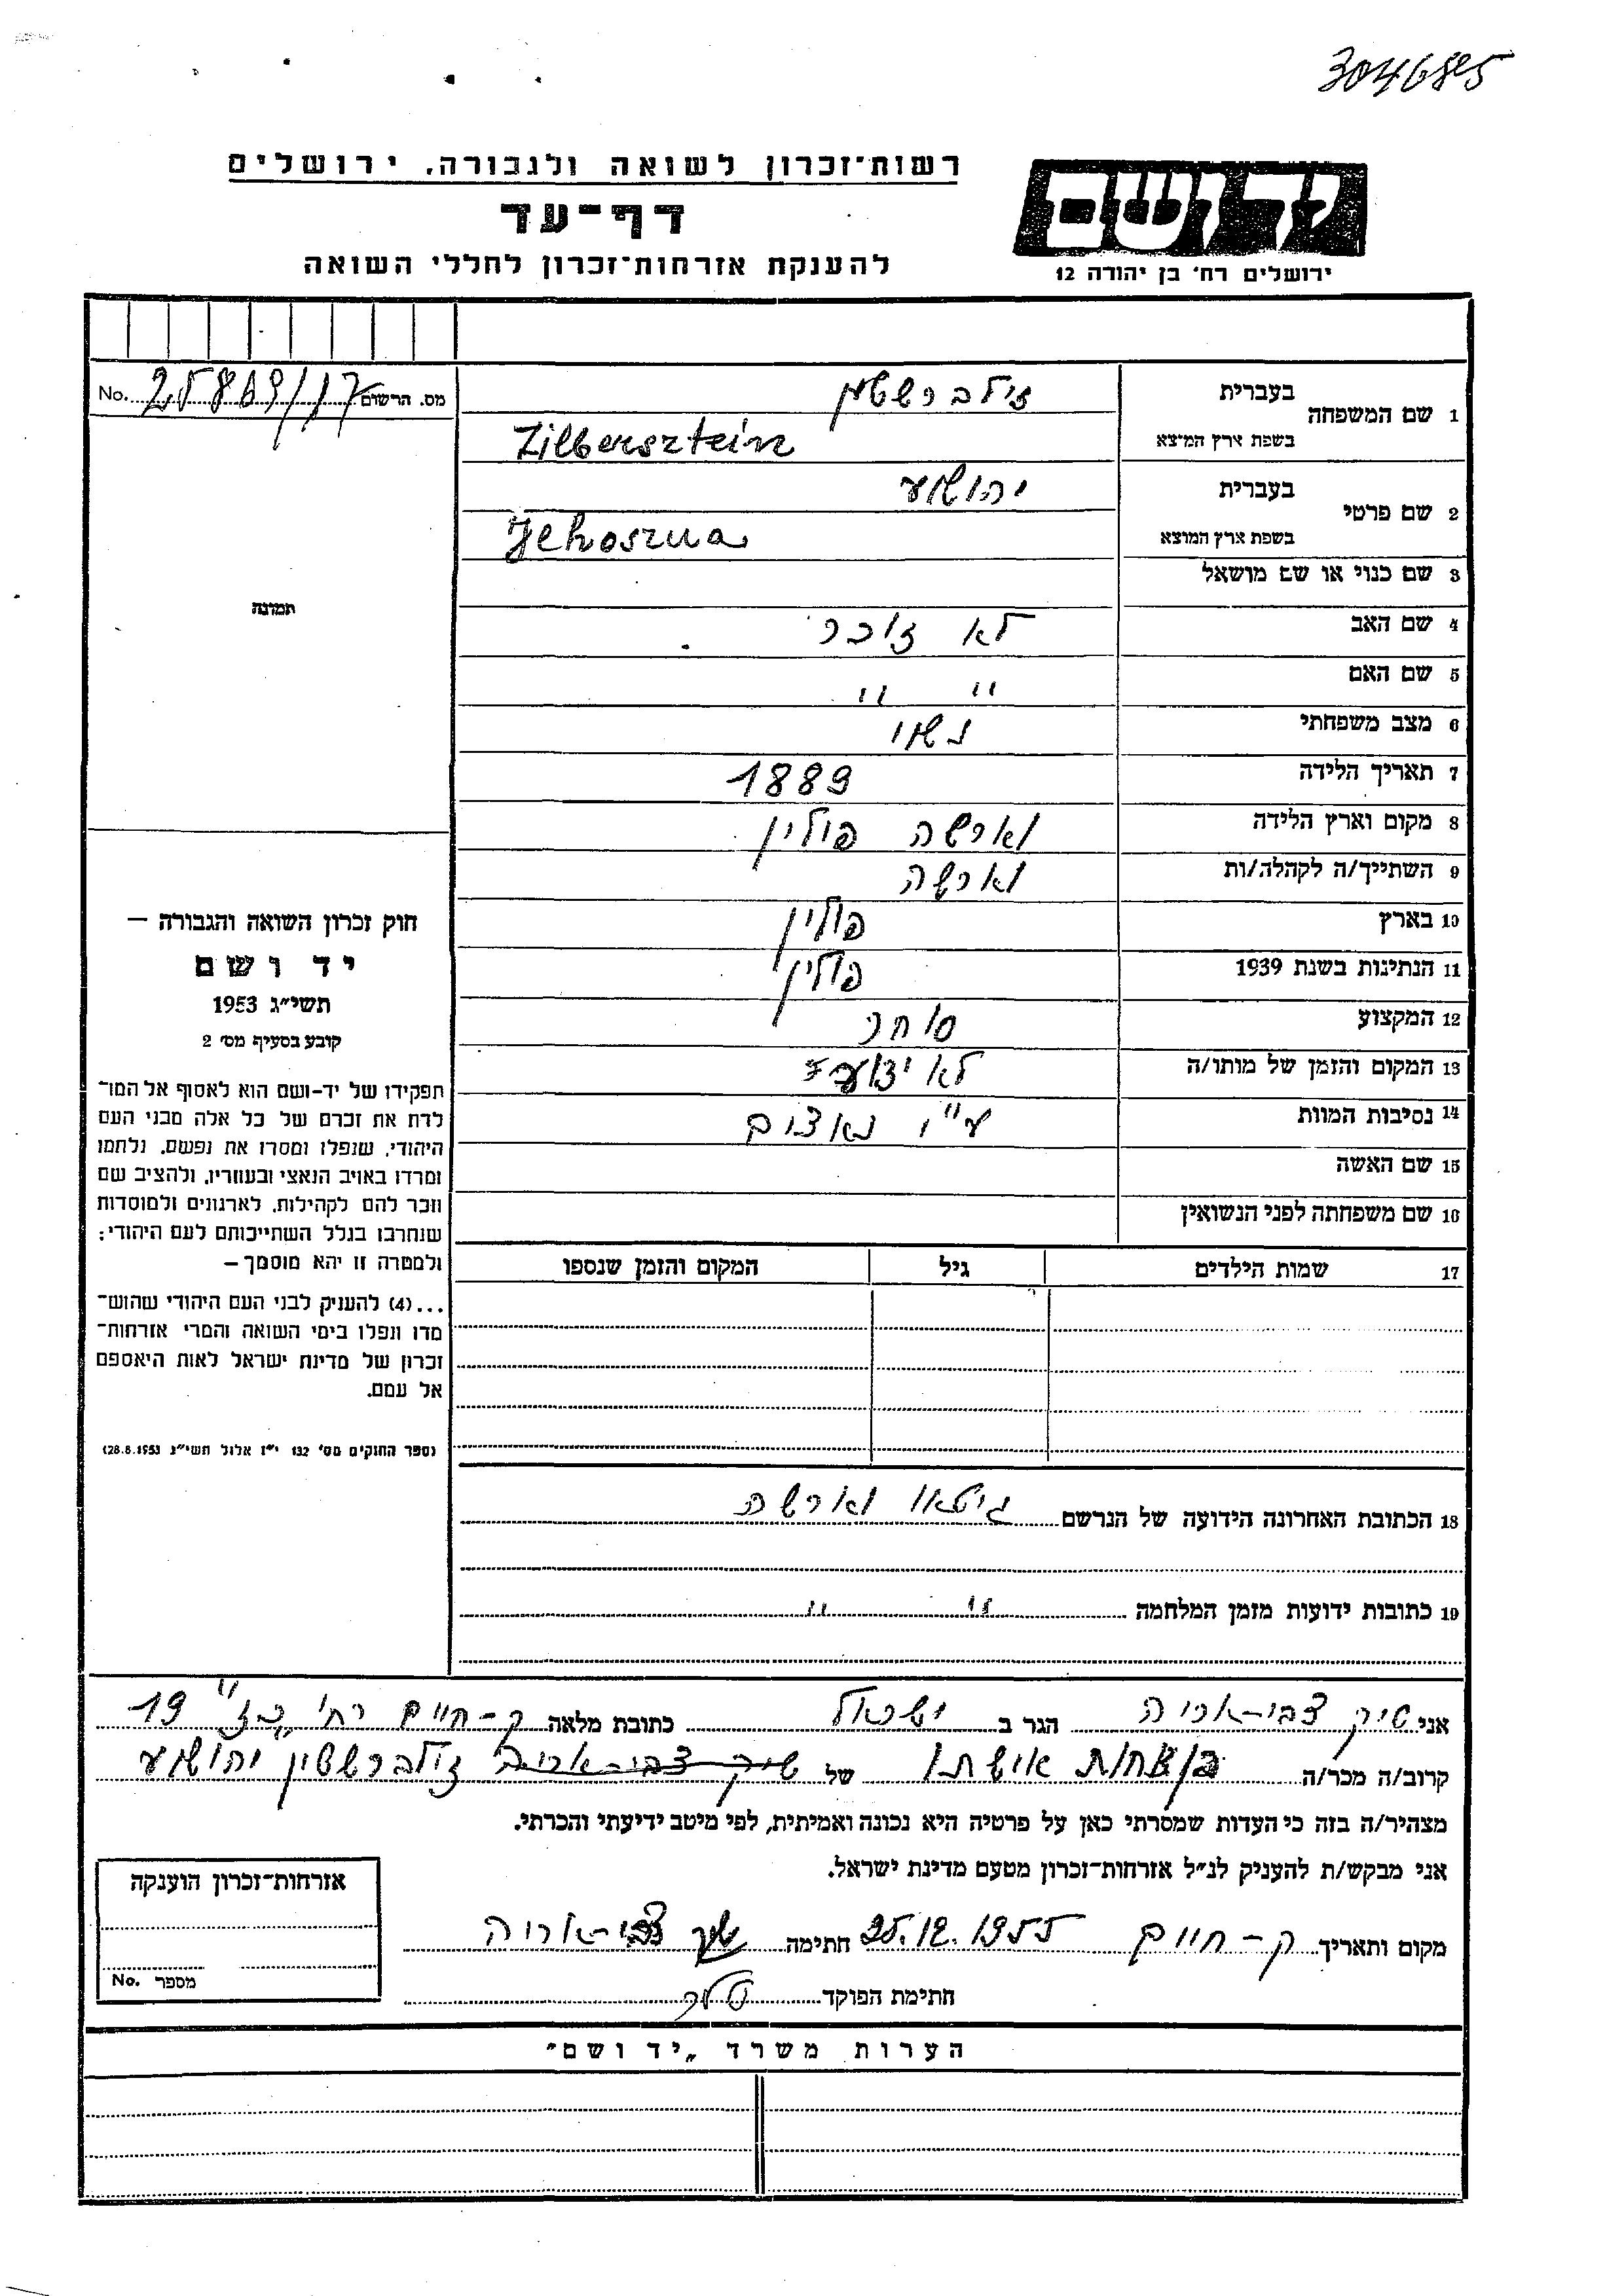 3046895
רשות־זכרון לשואה ולגבורה, ירושלים
דף־עד
להענקת אזרחות־זכרון לחללי השואה
ידושם
ירושלים רח' בן יהודה 12
מס. הרשום 25869/17 No.
1 שם המשפחה בעברית זילברשטין
בשפת ארץ המוצא Zilbersztein
2 שם פרטי בעברית יהושע
בשפת ארץ המוצא Jehoszua
3 שם כנוי או שם מושאל
תמונה
4 שם האב לא זוכר
5 שם האם " "
6 מצב משפחתי נשוי
7 תאריך הלידה 1889
8 מקום וארץ הלידה ווארשה פולין
9 השתייך/ה לקהלה/ות ווארשה
10 בארץ פולין
11 הנתינות בשנת 1939 פולין
12 המקצוע סוחר
13 המקום והזמן של מותו/ה לא ידוע
14 נסיבות המוות ע"י נאצים
15 שם האשה
16 שם משפחתה לפני הנשואין
17 שמות הילדים גיל המקום והזמן שנספו
חוק זכרון השואה והגבורה –
יד ושם
תשי״ג 1953
קובע בסעיף מס׳ 2
תפקידו של יד-ושם הוא לאסוף אל המו־
לדת את זכרם של כל אלה מבני העם
היהודי, שנפלו ומסרו את נפשם, נלחמו
ומרדו באויב הנאצי ובעוזריו, ולהציב שם
וזכר להם לקהילות, לארגונים ולמוסדות
שנחרבו בגלל השתייכותם לעם היהודי;
ולמטרה זו יהא מוסמך –
...(4) להעניק לבני העם היהודי שהוש־
מדו ונפלו בימי השואה והמרי אזרחות־
זכרון של מדינת ישראל לאות היאספם
אל עמם.
(ספר החוקים מס׳ 132 י״ז אלול תשי״ג 28.8.1953)
18 הכתובת האחרונה הידועה של הנרשם גיטאו ווארשה
19 כתובות ידועות מזמן המלחמה " "
אני שיק צבי-אריה הגר ב ישראל כתובת מלאה ק-חיים רח' 19
קרוב/ה מכר/ה אישתו של שיק צבי-אריה זילברשטין יהושע
מצהיר/ה בזה כי העדות שמסרתי כאן על פרטיה היא נכונה ואמיתית, לפי מיטב ידיעתי והכרתי.
אני מבקש/ת להעניק לנ״ל אזרחות־זכרון מטעם מדינת ישראל.
מקום ותאריך ק-חיים 25.12.1955 חתימה שיק צבי-אריה
חתימת הפוקד
אזרחות־זכרון הוענקה
מספר No.
הערות משרד „יד ושם״